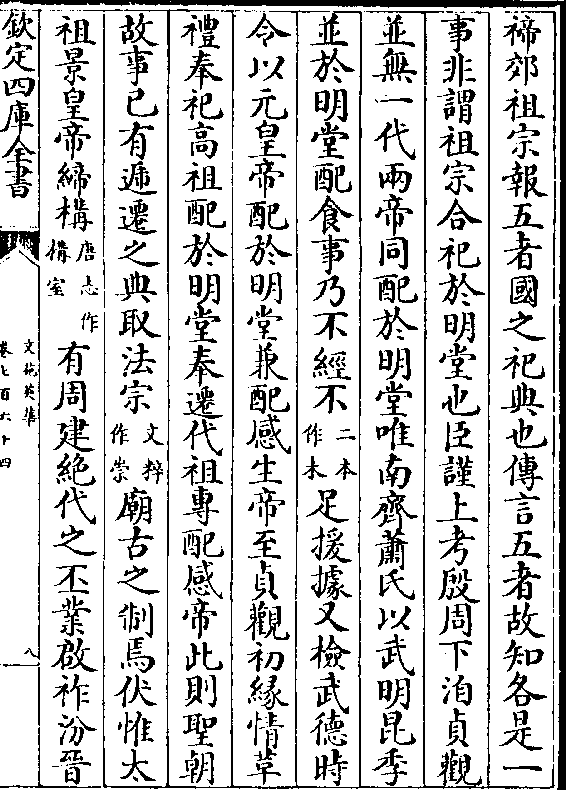 禘郊祖宗報五者國之祀典也傳言五者故知各是一
事非謂祖宗合祀於明堂也臣謹上考殷周下洎貞觀
並無一代兩帝同配於明堂唯南齊蕭氏以武明昆季
並於明堂配食事乃不經不二本作未足援據又檢武德時
令以元皇帝配於明堂兼配感生帝至貞觀初緣情革
禮奉祀高祖配於明堂奉遷代祖專配感帝此則聖朝
故事已有遞遷之典取法宗文粹作崇廟古之制焉伏惟太
祖景皇帝締構唐志作構室有周建絶代之丕業啟祚汾晉
欽定四庫全書
文苑英華
卷七百六十四
八